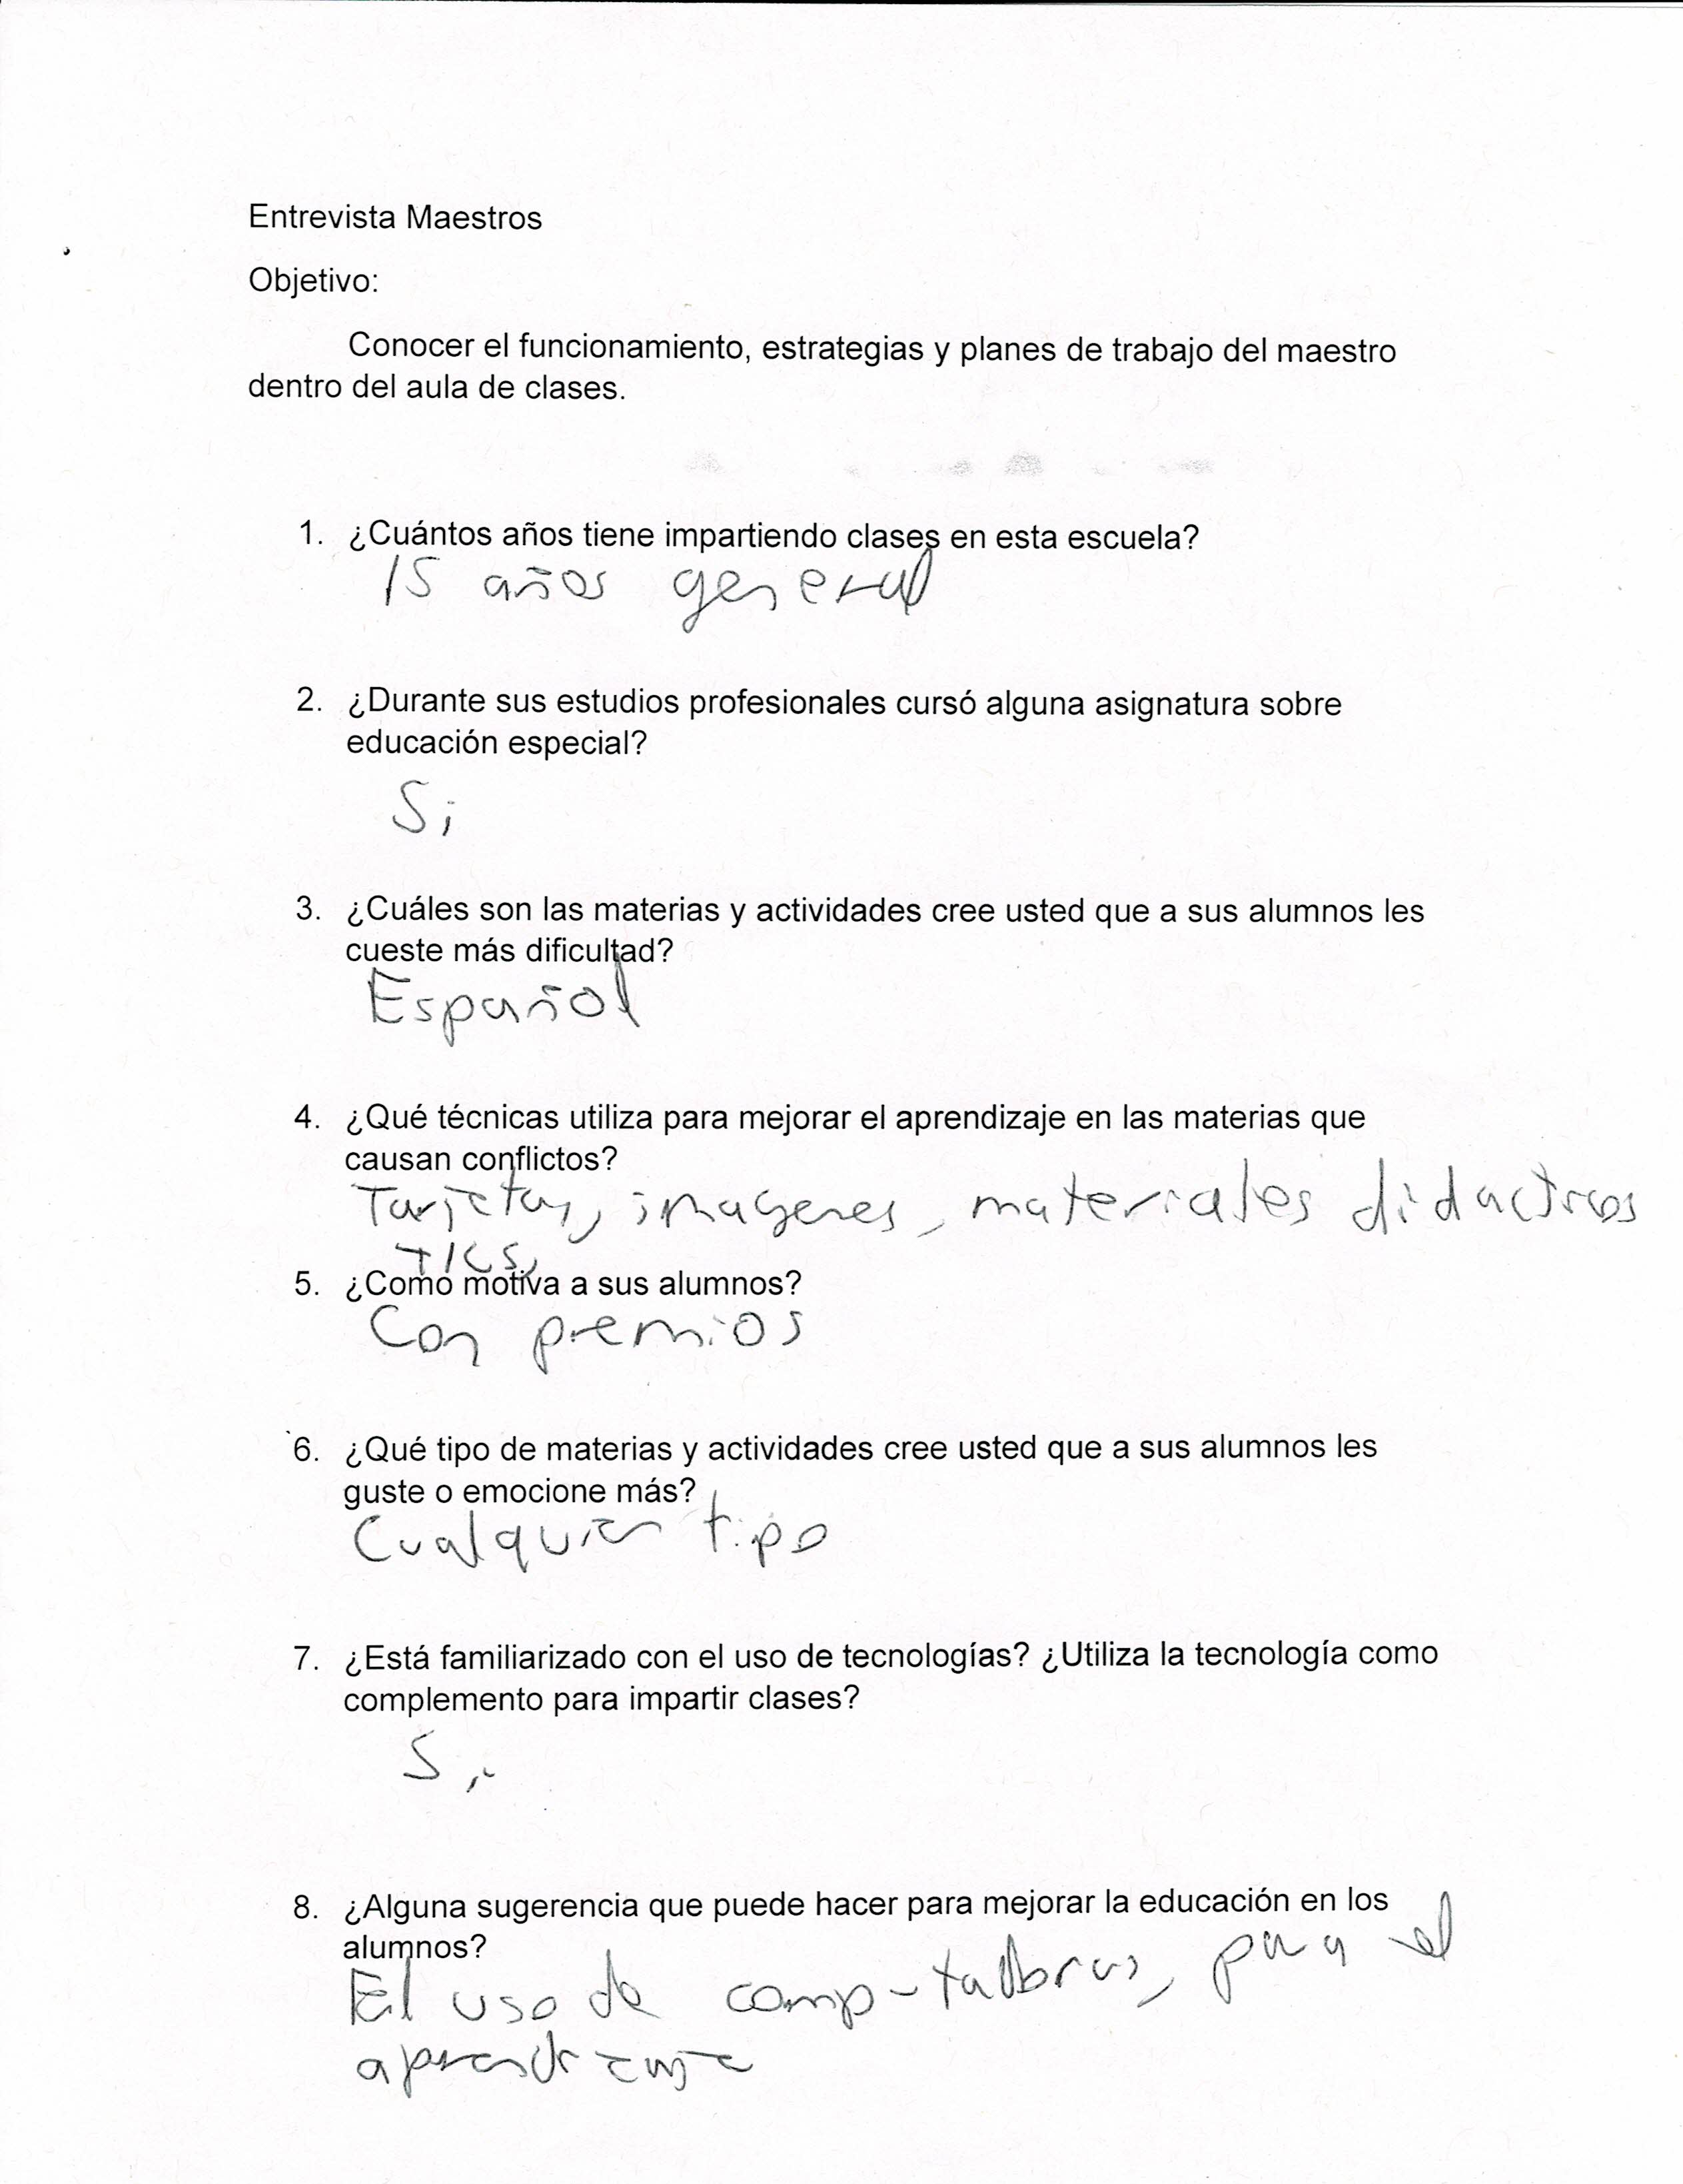 Entrevista Maestros
Objetivo:
Conocer el funcionamiento, estrategias y planes de trabajo del maestro
dentro del aula de clases.
1. ¿Cuántos años tiene impartiendo clases en esta escuela?
15 años general
2. ¿Durante sus estudios profesionales cursó alguna asignatura sobre
educación especial?
Si
3. ¿Cuáles son las materias y actividades cree usted que a sus alumnos les
cueste más dificultad?
Español
4. ¿Qué técnicas utiliza para mejorar el aprendizaje en las materias que
causan conflictos?
Tarjetas, imagenes, materiales didacticos
TICS,
5. ¿Como motiva a sus alumnos?
Con premios
6. ¿Qué tipo de materias y actividades cree usted que a sus alumnos les
guste o emocione más?
Cualquier tipo
7. ¿Está familiarizado con el uso de tecnologías? ¿Utiliza la tecnología como
complemento para impartir clases?
Si
8. ¿Alguna sugerencia que puede hacer para mejorar la educación en los
alumnos?
El uso de para el
aprendizaje